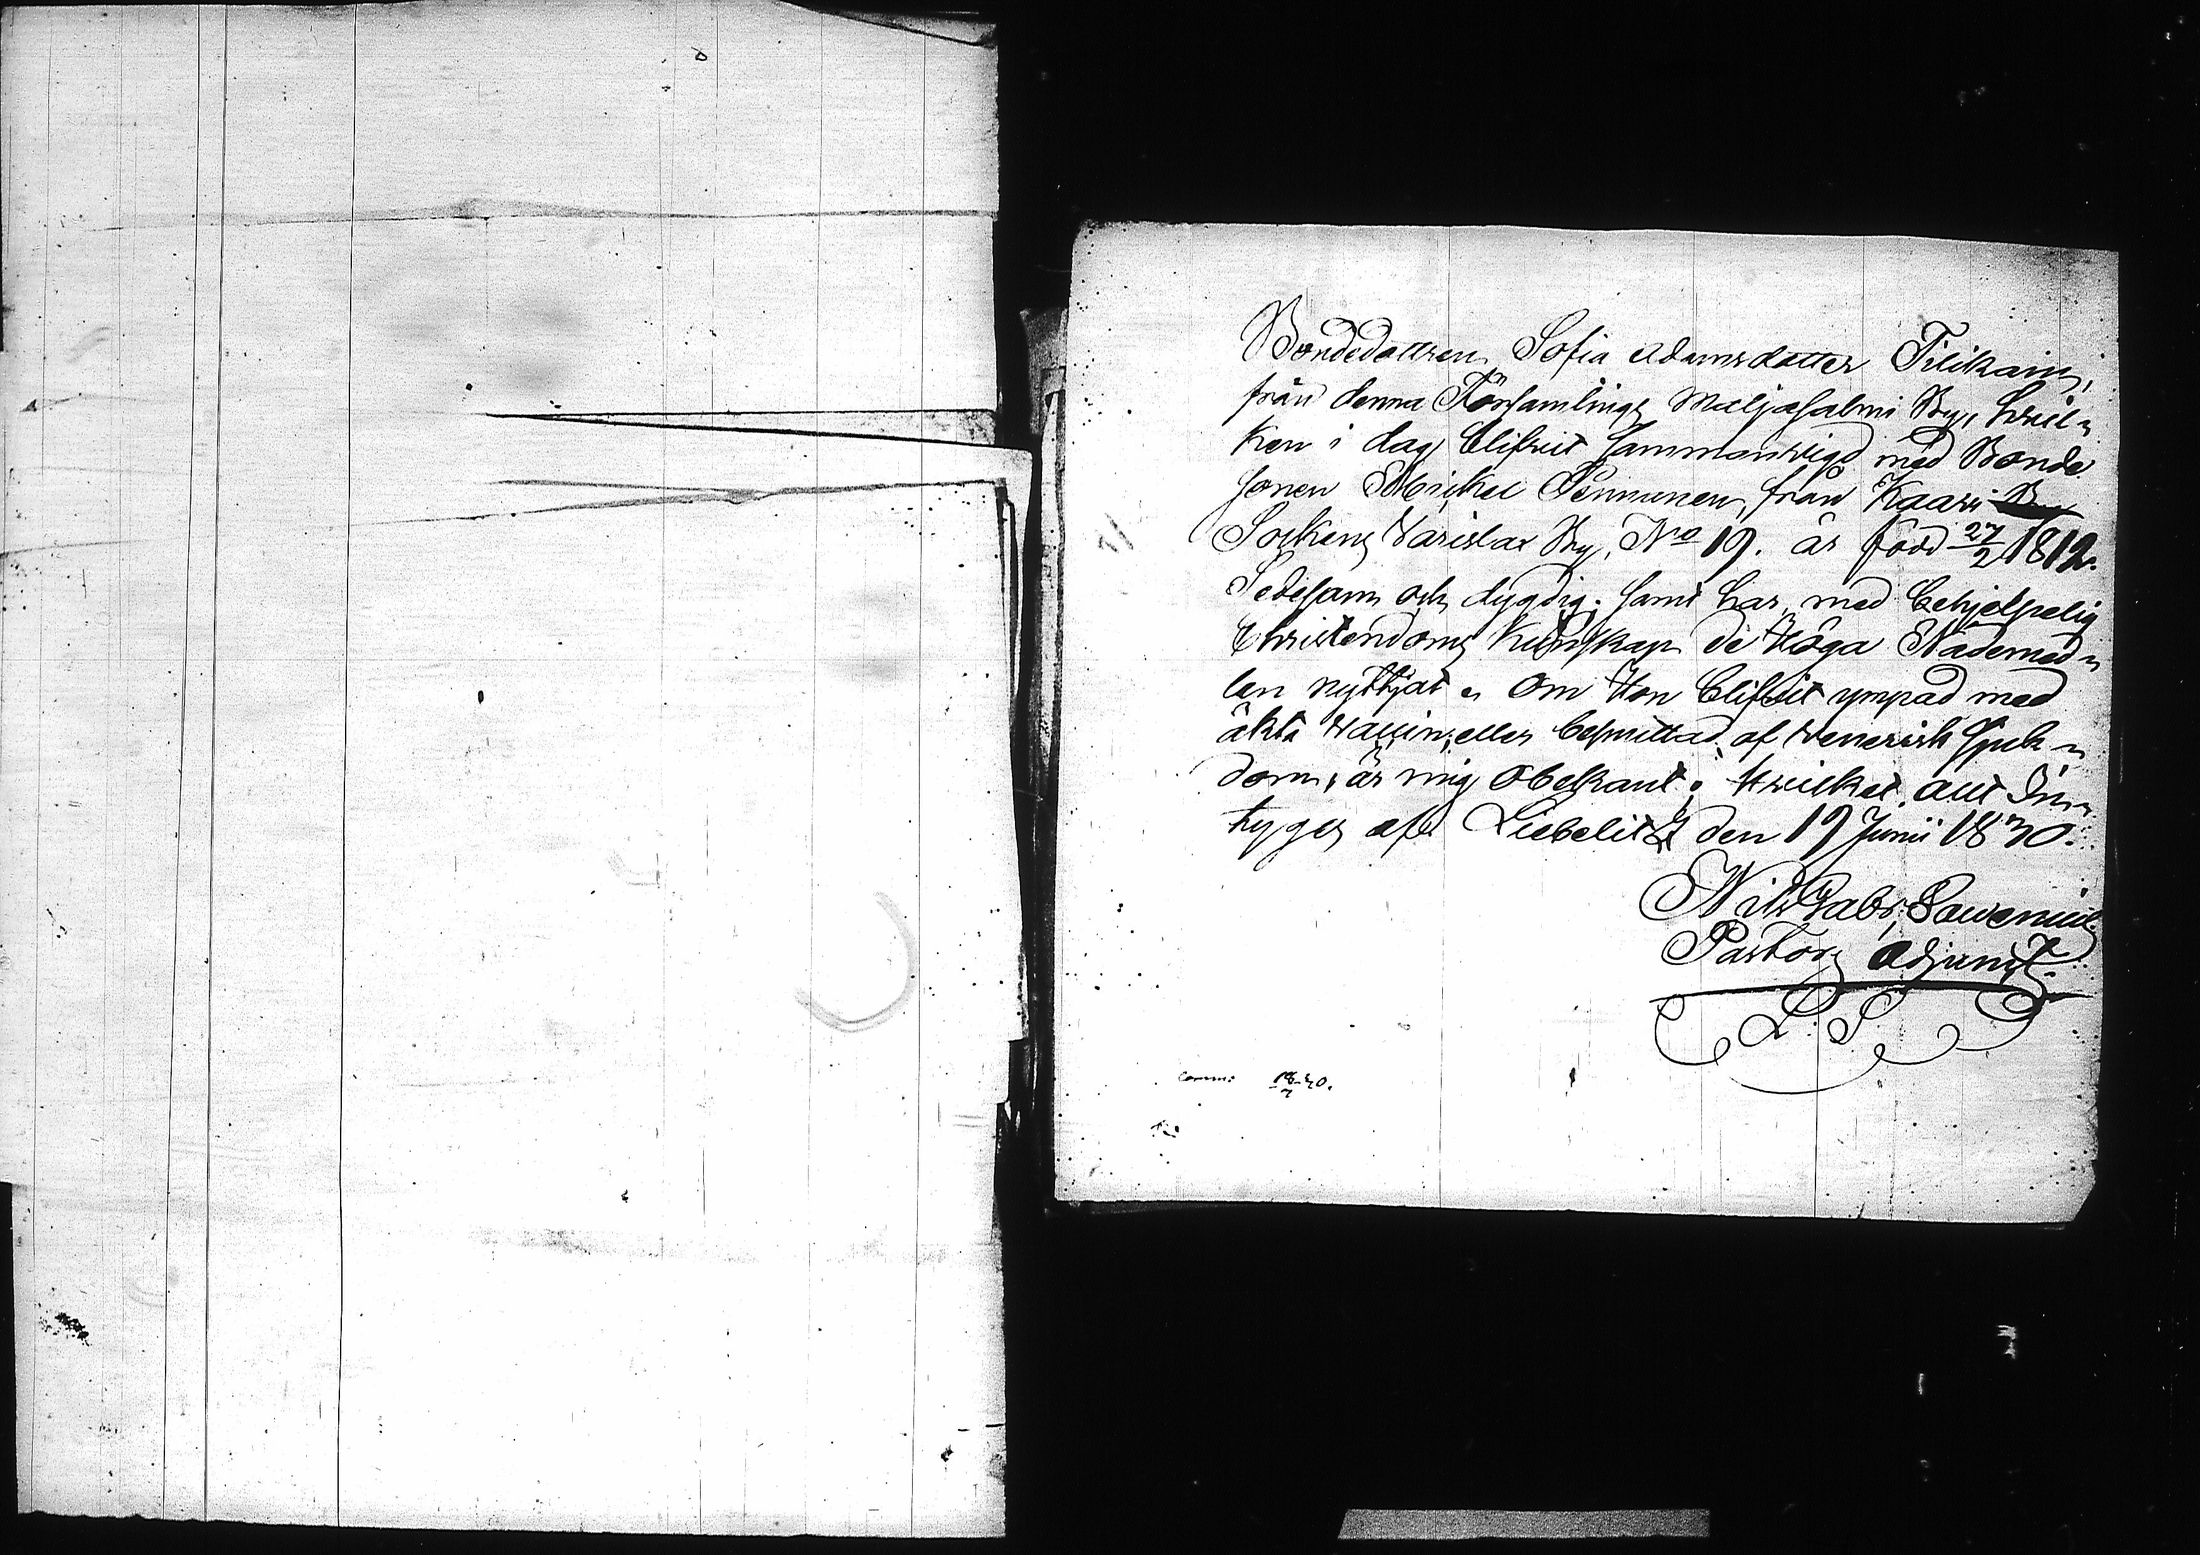 Bondedottren Sofia Adamsdotter Tiikain,
från denna Församlings Maljasalmi By, hvil-
ken i dag blifvit sammanvigd med Bonde
sonen Michel Pennunen, från Kaavi
Sockens Varislax By, No 19. är född 27/2 1812.
Sedesam och dygdig; samt har med behjelpelig
Christendoms kunskap de Höga Nådemed-
len nyttjat. Om Hon blifvit ympad med
äkta vaccin, eller besmittad af Venerisk sjuk-
dom, är mig obekant. Hvilket att In-
tyges af Liebelitz den 19 Junii 1830.
Nils Gabr,
Pastors Adjunct.
L S
18/7 30.